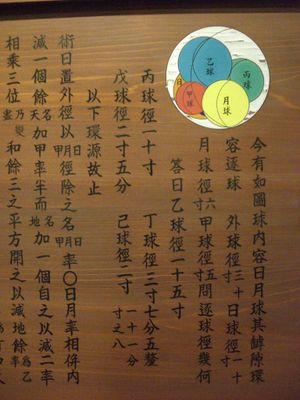 乙球
丙球
甲球
月球
日
今有如圖球内容日月球其罅隙環
容逐球 外球徑三十寸 日球徑一十寸
月球徑六寸 甲球徑五寸 問逐球徑幾何
答曰乙球徑一十五寸
丙球徑一十寸 丁球徑三寸七分五釐
戊球徑二寸五分 己球徑二寸一十一分寸之八
以下環源故止
術日置外徑以日月甲徑除之名日月甲率〇日月率相併内
減一個餘名天加甲率半而名地加一個自之以減二率
相乘三位乃變盡和餘三之平方開之以減地餘為乙率